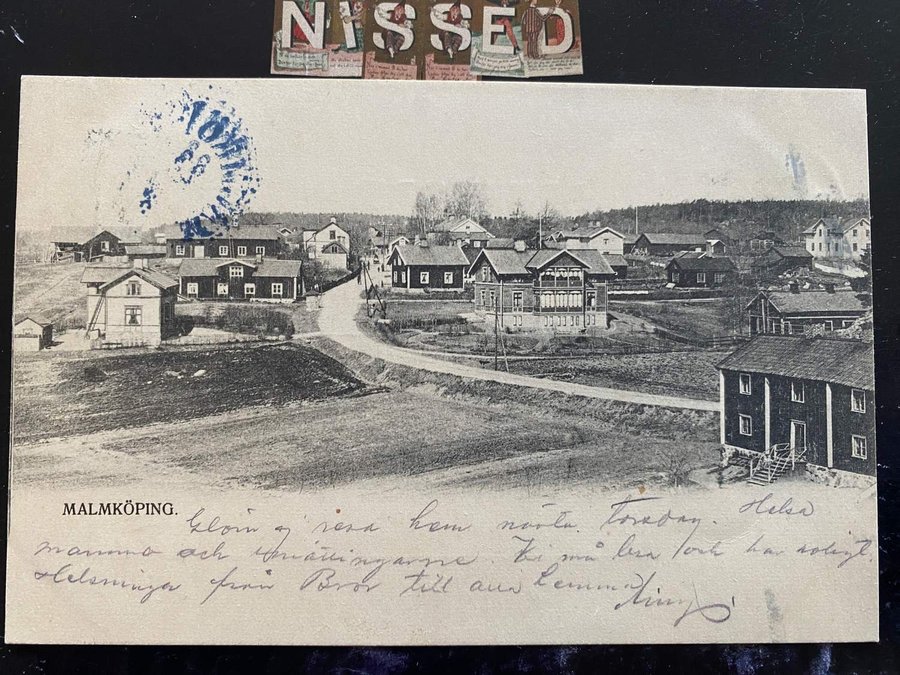 NISSED
MALMKÖPING.
Glöm ej resa hem nästa Torsdag. Helsa
mamma och småttingarne Vi må bra och har roligt.
Helsningar från Bror till alla hemma